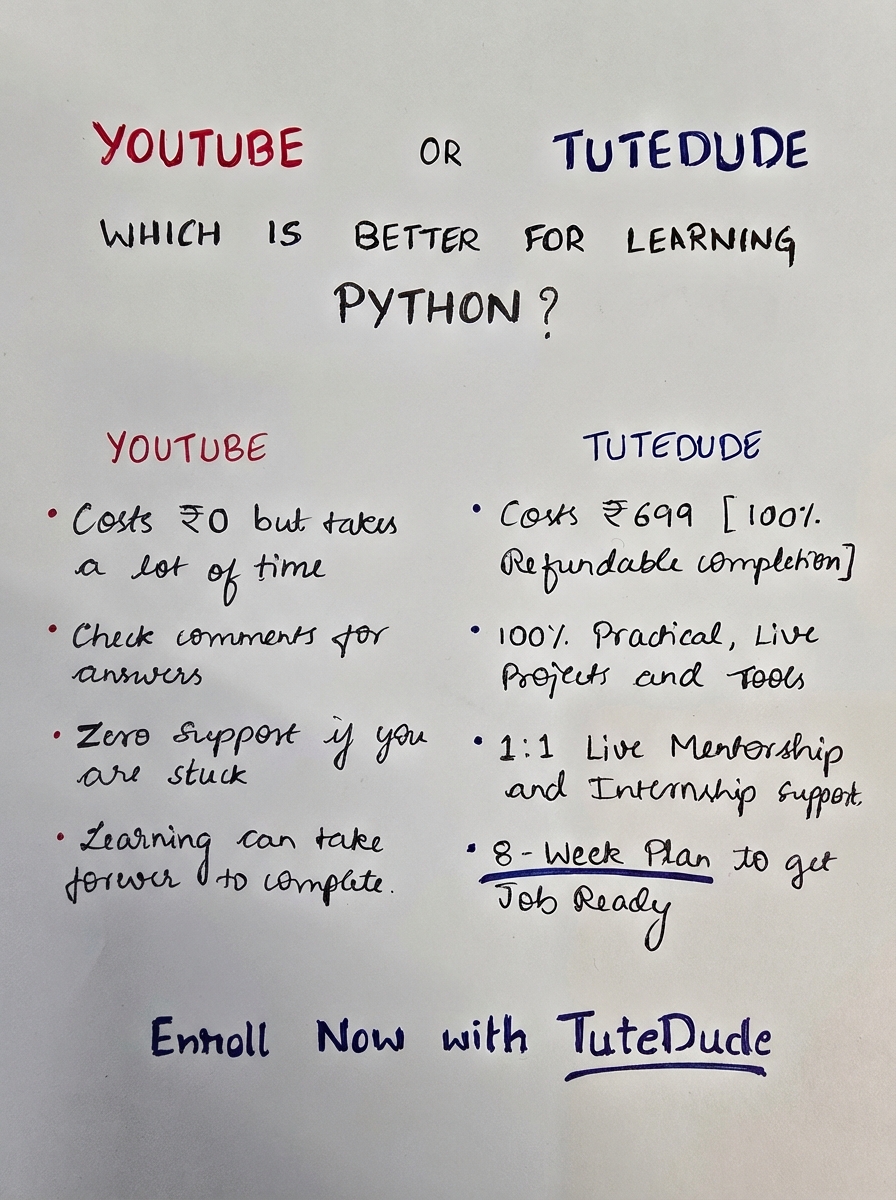 YOUTUBE OR TUTEDUDE
WHICH IS BETTER FOR LEARNING
PYTHON?
YOUTUBE
• Costs ₹0 but takes
a lot of time
• Check comments for
answers
• Zero support if you
are stuck
• Learning can take
forever to complete.
TUTEDUDE
• Costs ₹699 [100%
Refundable completion]
• 100% Practical, Live
Projects and Tools
• 1:1 Live Mentorship
and Internship support.
• 8-Week Plan to get
Job Ready
Enroll Now with TuteDude